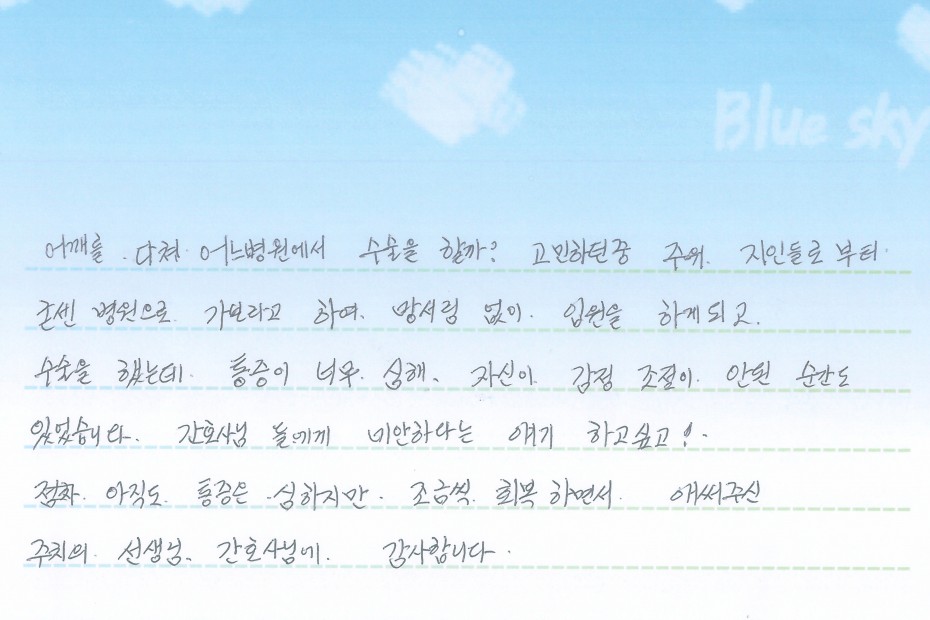 Blue sky
어깨를 다쳐 어느병원에서 수술을 할까? 고민하던중 주위 지인들로 부터
굳센 병원으로 가보라고 하여 망서림 없이 입원을 하게되고.
수술을 했는데 통증이 너무 심해, 자신이 감정 조절이 안된 순간도
있었습니다. 간호사님 들에게 미안하다는 얘기 하고싶고!
점차 아직도 통증은 심하지만 조금씩 회복 하면서 애써주신
주치의 선생님, 간호사님께 감사합니다.